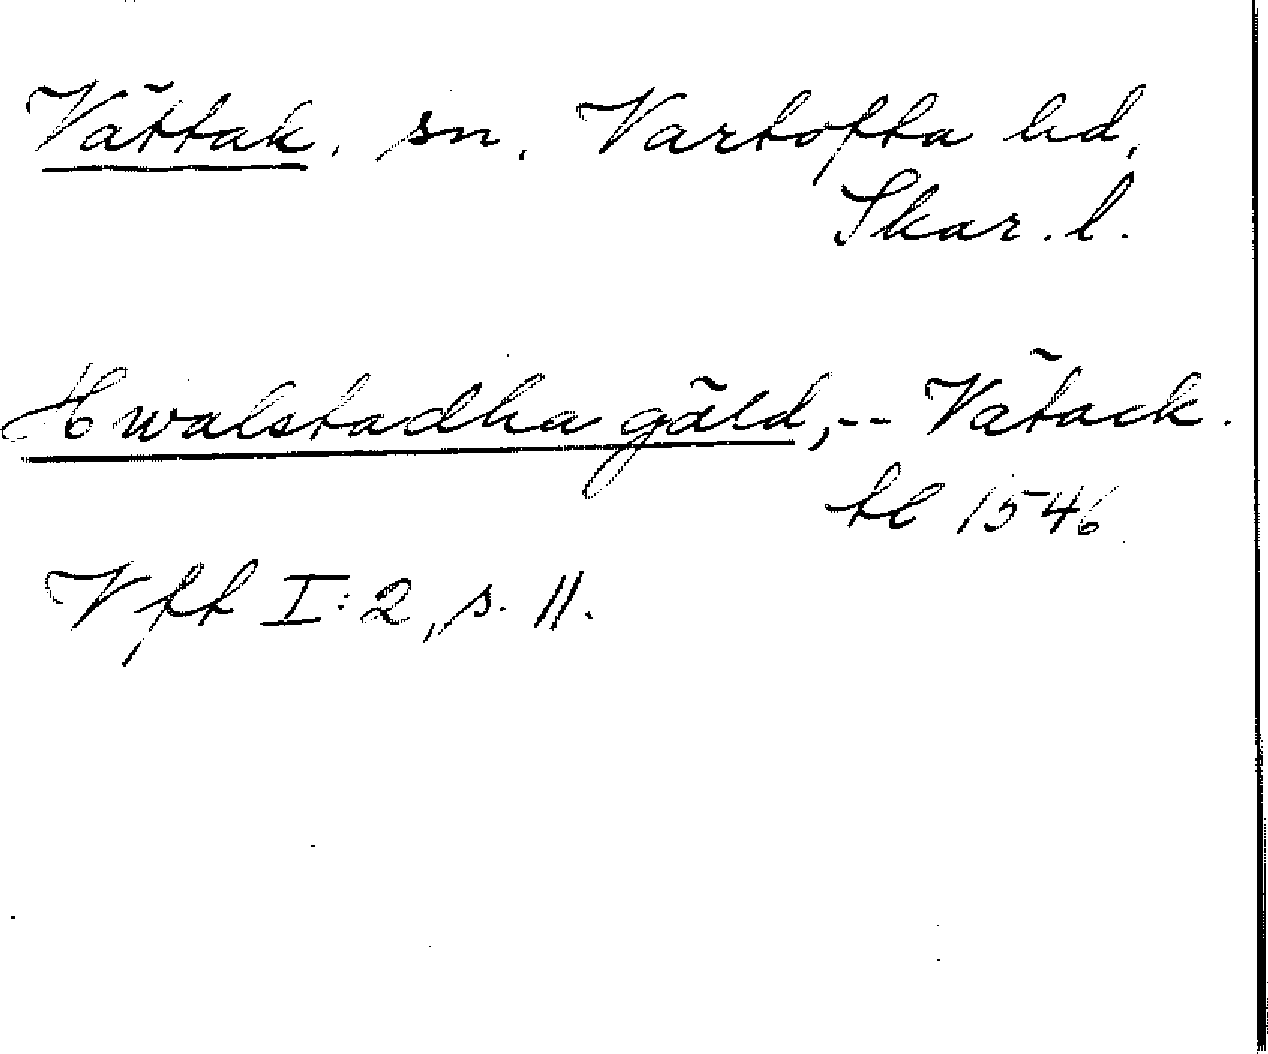 Vättak, sn, Vartofta hd,
Skar. l.
Hwalstadha gäld, -- Vätack.
tl 1546
Vft I:2, s. 11.